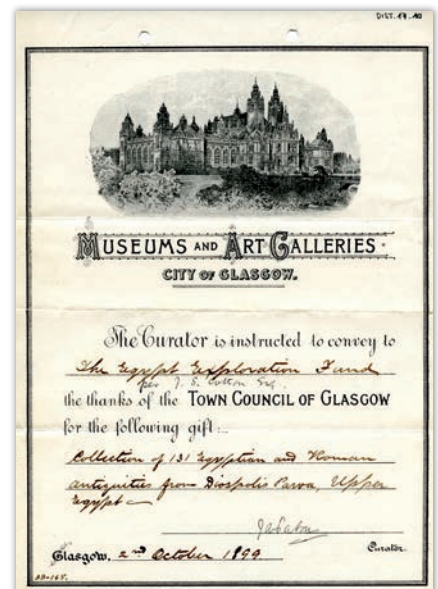 DIST.17.10
MUSEUMS AND ART GALLERIES
CITY OF GLASGOW.
The Curator is instructed to convey to
The Egypt Exploration Fund
per J. S. Cotton Esq.
the thanks of the TOWN COUNCIL OF GLASGOW
for the following gift:
Collection of 131 Egyptian and Roman
antiquities from Diospolis Parva, Upper
Egypt
Curator.
Glasgow, 2nd October 1899